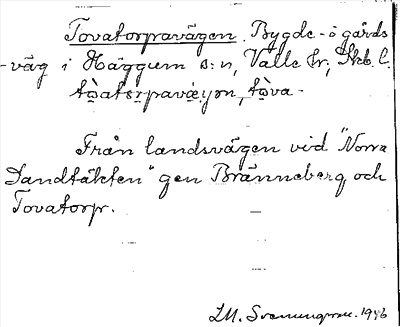 Tovatorpavägen. Bygde- o gårds
-väg i Häggum s:n, Valle hr, Skb. l.
tòatorpavæ̀yən, tòva-
Från landsvägen vid "Norra
Sandtäkten" gen Bränneberg och
Tovatorp.
L.M. Svenungsson. 1946